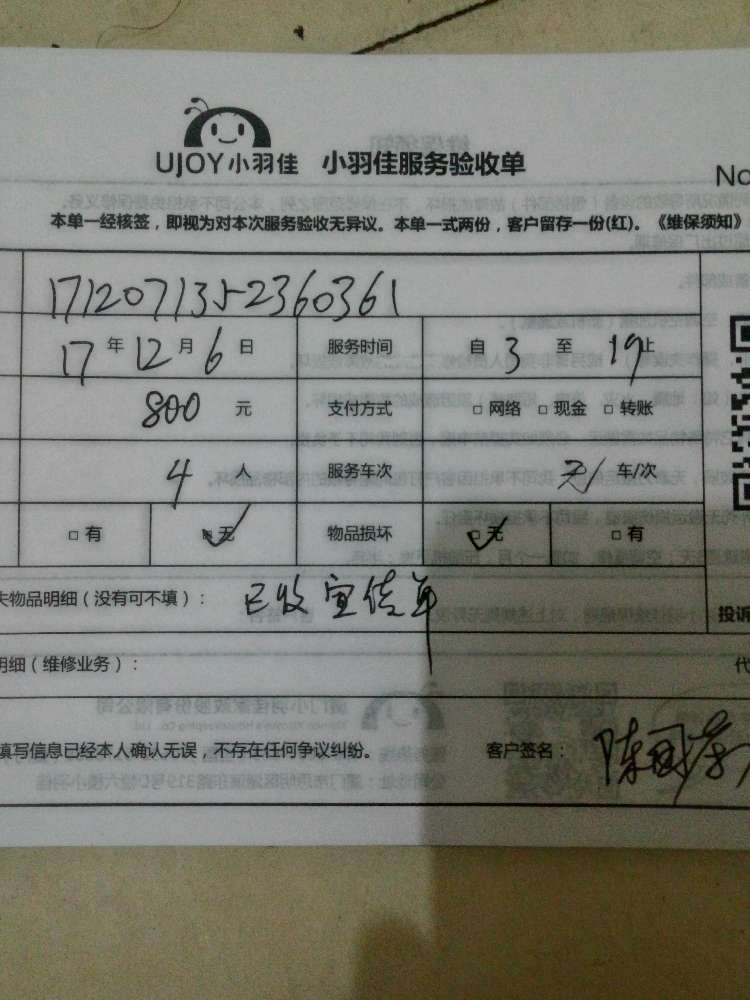 UJOY小羽佳 小羽佳服务验收单
No
本单一经核签，即视为对本次服务验收无异议。本单一式两份，客户留存一份(红)。《维保须知》
1712071352360361
17 年 12 月 6 日 服务时间 自 3 至 19止
800 元 支付方式 □ 网络 □ 现金 □ 转账
4 人 服务车次 无 车/次
□ 有 □ 无 物品损坏 □ 无 □ 有
失物品明细（没有可不填）： 已收宣传单
投诉
明细（维修业务）：
代
填写信息已经本人确认无误，不存在任何争议纠纷。 客户签名：